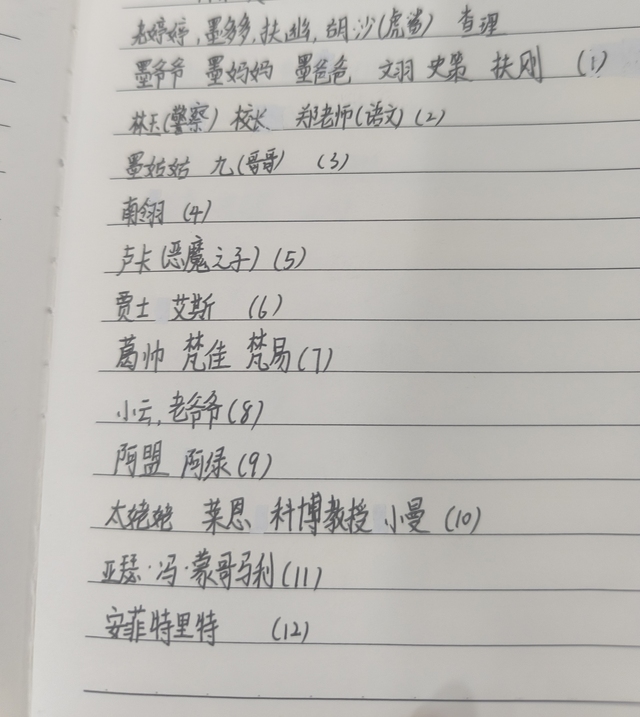 尧婷婷,墨多多,扶幽,胡沙(虎鲨) 查理
墨爷爷 墨妈妈 墨爸爸 文羽 史策 扶刚 (1)
林玉(警察) 校长 郑老师(语文) (2)
墨姑姑 九(哥哥) (3)
(4)
卢卡(恶魔之子) (5)
贾士 艾斯 (6)
葛帅 梵佳 梵易(7)
小云,老爷爷(8)
阿盟 阿绿(9)
太姥姥 莱恩 科博教授 小曼 (10)
亚瑟·冯·蒙哥马利(11)
安菲特里特 (12)